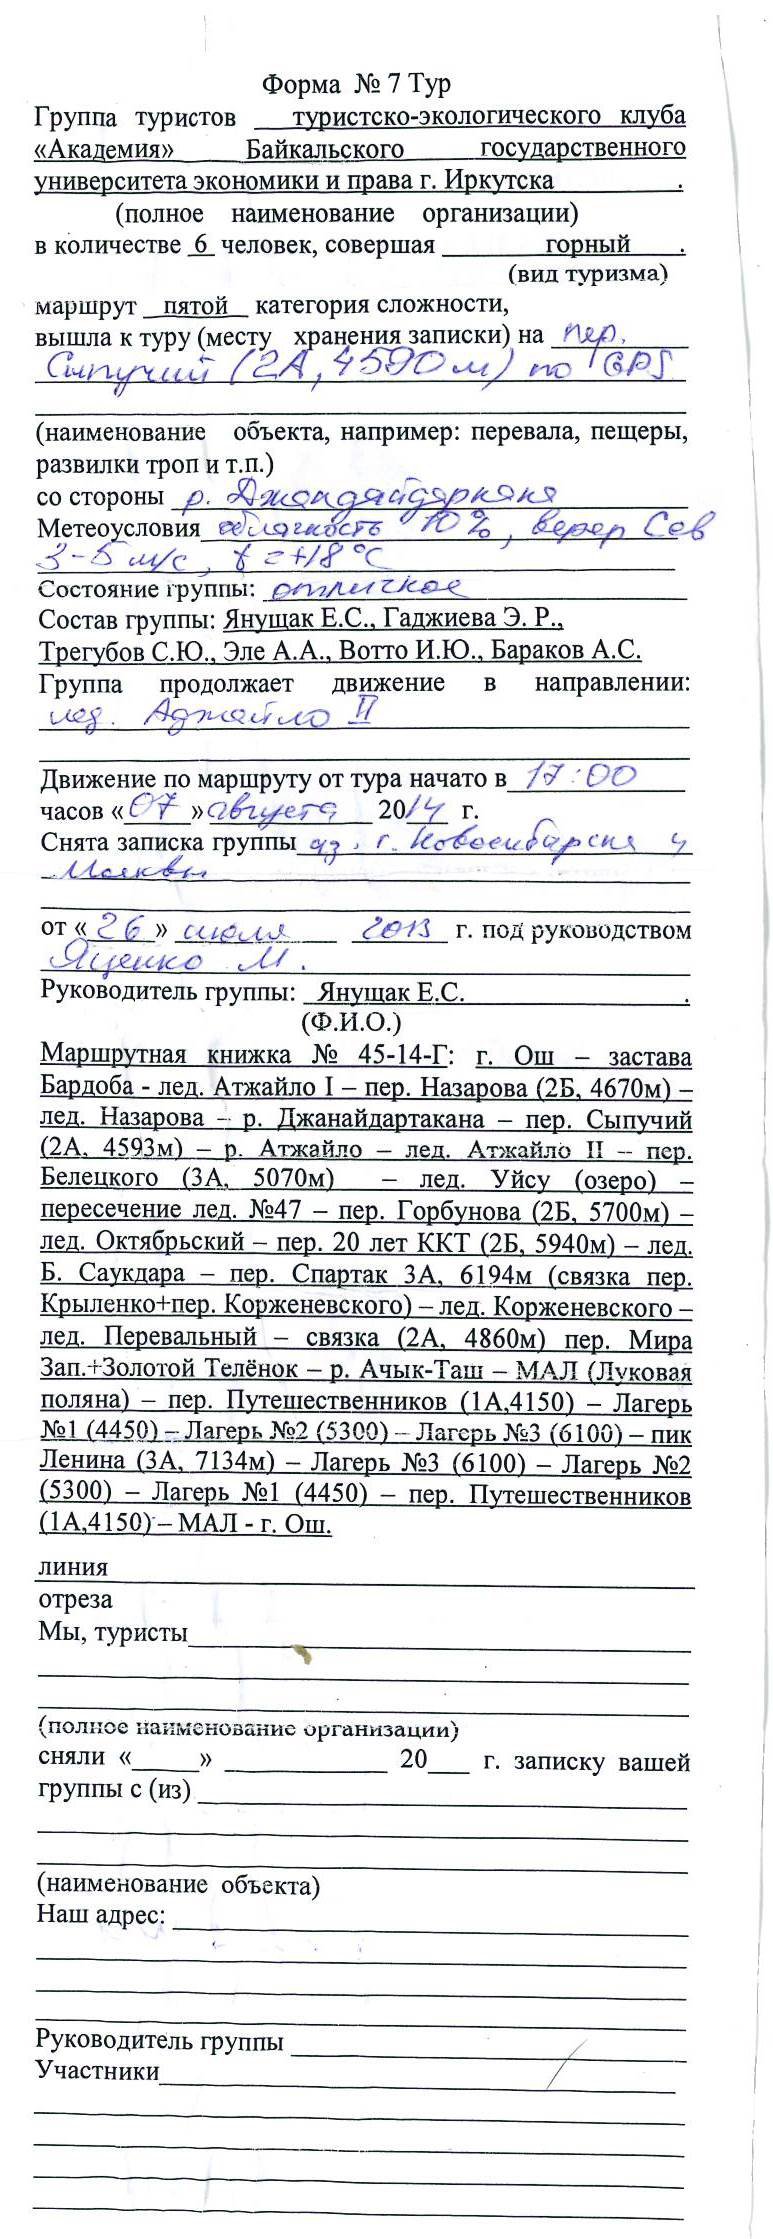 Форма № 7 Тур
Группа туристов туристско-экологического клуба
«Академия» Байкальского государственного
университета экономики и права г. Иркутска .
(полное наименование организации)
в количестве 6 человек, совершая горный .
(вид туризма)
маршрут пятой категория сложности,
вышла к туру (месту хранения записки) на пер.
Сыпучий (2А, 4590 м) по GPS
(наименование объекта, например: перевала, пещеры,
развилки троп и т.п.)
со стороны р.
Метеоусловия облачность 10%, Сев
3-5 м/с, t = +18 °C
Состояние группы: отличное
Состав группы: Янущак Е.С., Гаджиева Э. Р.,
Трегубов С.Ю., Эле А.А., Вотто И.Ю., Бараков А.С.
Группа продолжает движение в направлении:
лед. Аджайло II
Движение по маршруту от тура начато в 17:00
часов «07» августа 2014 г.
Снята записка группы из г. Новосибирска и
Москвы
от «26» июля 2013 г. под руководством
Яценко М.
Руководитель группы: Янущак Е.С. .
(Ф.И.О.)
Маршрутная книжка № 45-14-Г: г. Ош – застава
Бардоба - лед. Атжайло I – пер. Назарова (2Б, 4670м) –
лед. Назарова – р. Джанайдартакана – пер. Сыпучий
(2А, 4593м) – р. Атжайло – лед. Атжайло II – пер.
Белецкого (3А, 5070м) – лед. Уйсу (озеро) –
пересечение лед. №47 – пер. Горбунова (2Б, 5700м) –
лед. Октябрьский – пер. 20 лет ККТ (2Б, 5940м) – лед.
Б. Саукдара – пер. Спартак 3А, 6194м (связка пер.
Крыленко+пер. Корженевского) – лед. Корженевского –
лед. Перевальный – связка (2А, 4860м) пер. Мира
Зап.+Золотой Телёнок – р. Ачык-Таш – МАЛ (Луковая
поляна) – пер. Путешественников (1А,4150) – Лагерь
№1 (4450) – Лагерь №2 (5300) – Лагерь №3 (6100) – пик
Ленина (3А, 7134м) – Лагерь №3 (6100) – Лагерь №2
(5300) – Лагерь №1 (4450) – пер. Путешественников
(1А,4150) – МАЛ - г. Ош.
линия
отреза
Мы, туристы
(полное наименование организации)
сняли « » 20 г. записку вашей
группы с (из)
(наименование объекта)
Наш адрес:
Руководитель группы
Участники